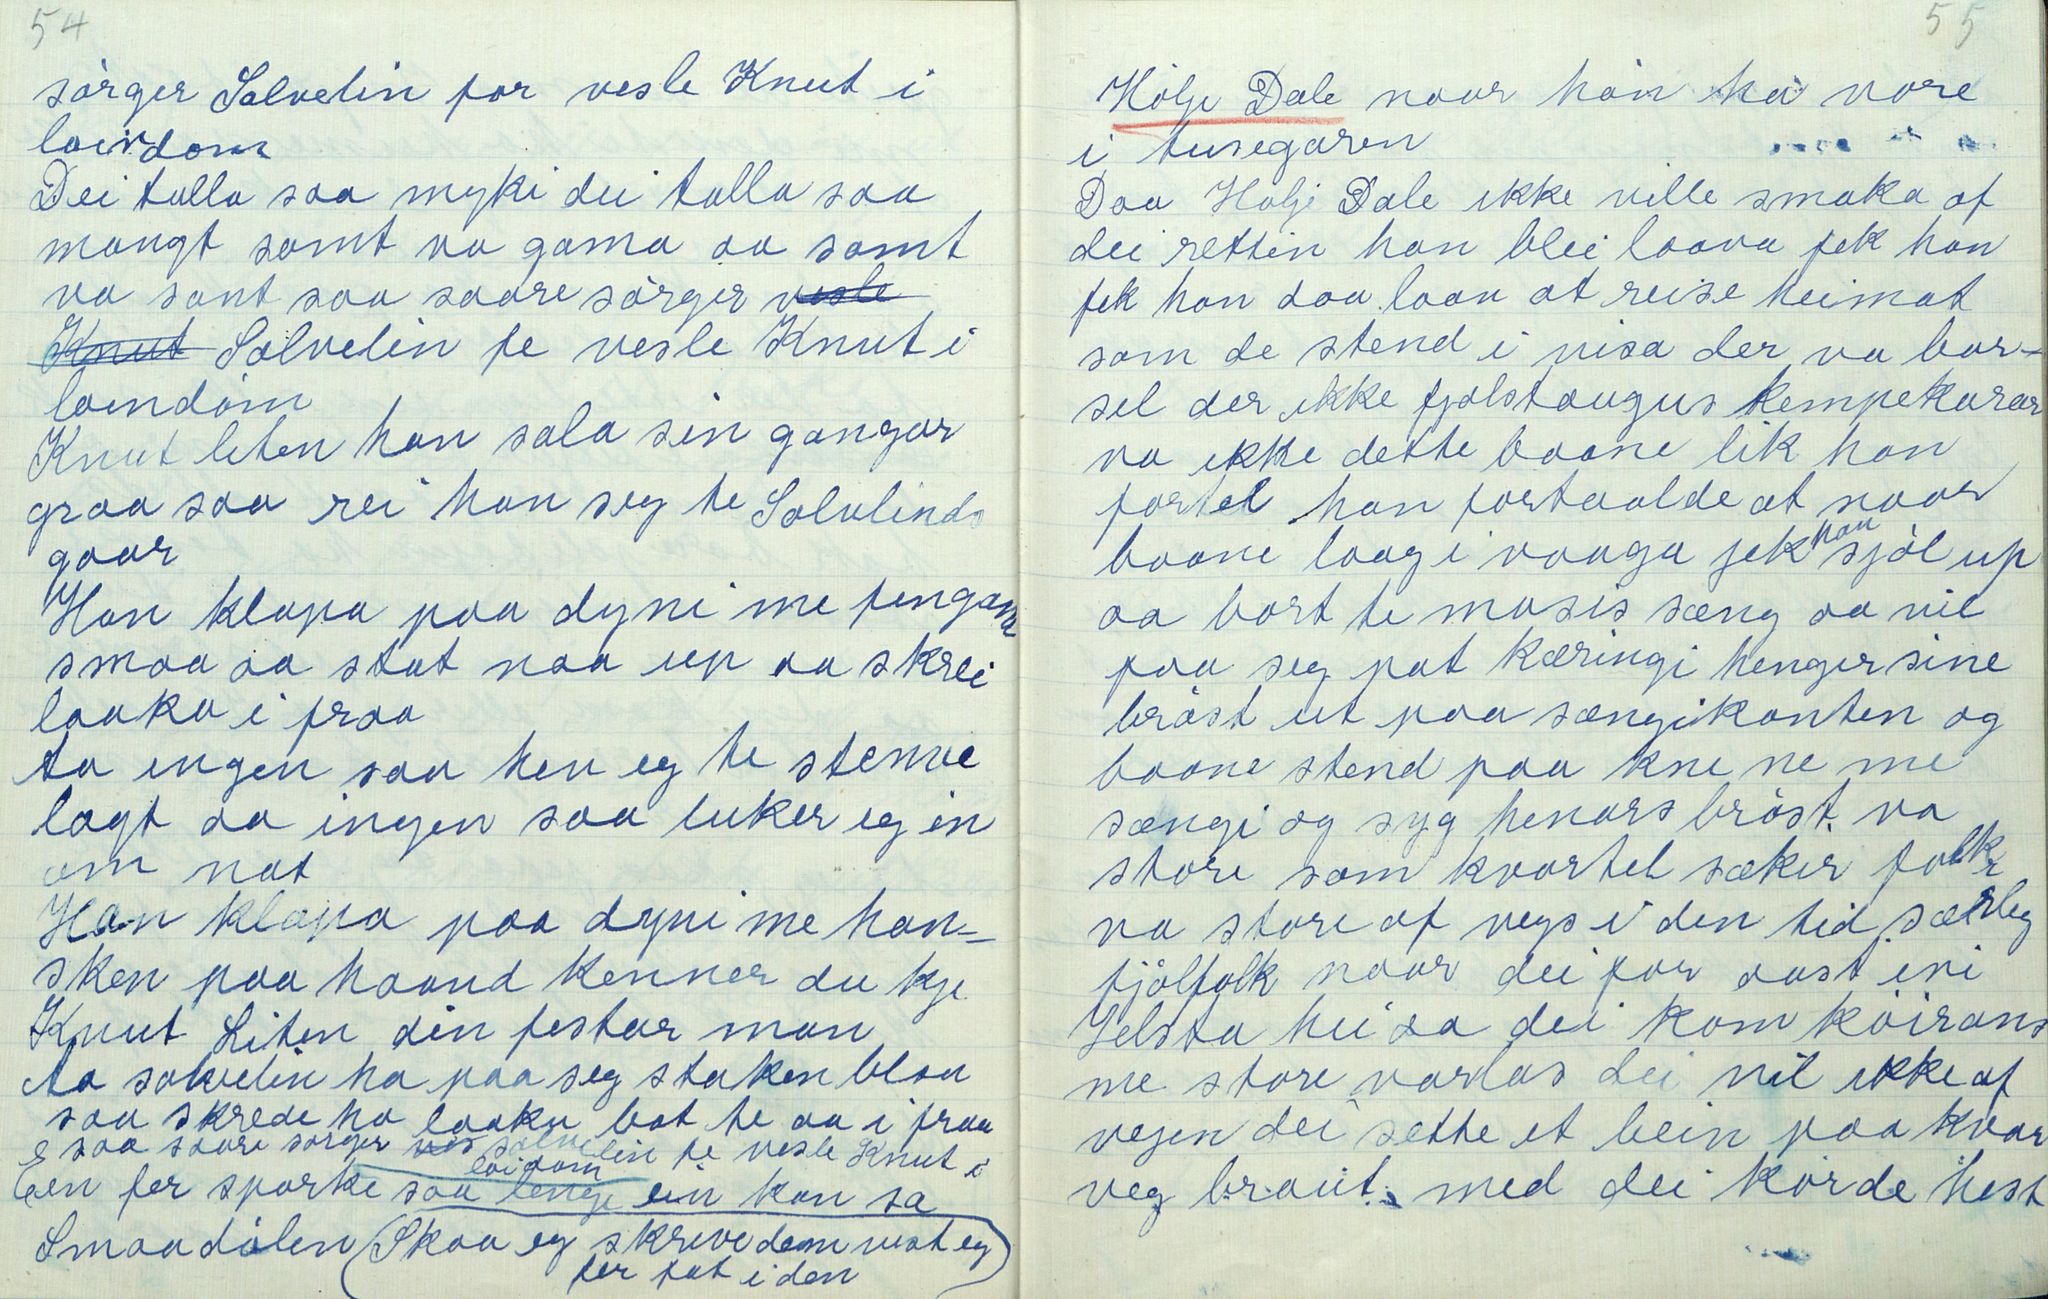 54
sörger Salvelin for vesle Knut i
loindom
Dei talla saa myki dei talla saa
mangt samt va gama aa samt
va sant saa saare sörger vesle
Knut Salvelin fe vesle Knut i
loindöm
Knut liten han sala sin gangar
graa saa rei han seg te Salvlinds
gaar
Han klapa paa dyni me fingann
smaa aa stat naa up aa skrei
laaka i fraa
ta engen saa hev eg te stemne
lagt aa ingen saa luker eg in
om nat
Han klapa paa dyni me han-
sken paa haand kenner du kje
Knut Liten din festar man
ta salvelin ha paa seg staken blaa
saa skrede ho laaku bot te aa i fraa
saa saare sörger ves salvelin fe vesle Knut i
loidom
en fer sparke saa lenge ein kan sa
Smaadölen (Skaa eg skreve dem vist eg
fer tat i den
55
Hölje Dale naar han ha vore
i tusegaren
Daa Holje Dale ikke ville smaka af
dei rettin han blei laava fek han
fek han daa laav at reise heimat
som de stend i visa der va bar-
sel der ikke fjolstaugus kempekarar
va ikke dette baane lik han
fortel han fortaalde at naar
baane laag i vaaga jek han sjöl up
aa bort te masis sæng aa vil
paa seg pat kæringi henger sine
bröst ut paa sængikanten og
baane stend paa kne ne me
sængi og syg henars bröst va
store som kvartel sæker folk
va store af vegs i den tid særleg
fjölfolk naar dei for aast ivi
Jelsta hei aa dei kom köirans
me store varlas dei vil ikke af
vegen dei sette et bein paa kvar
veg braut med dei körde hest